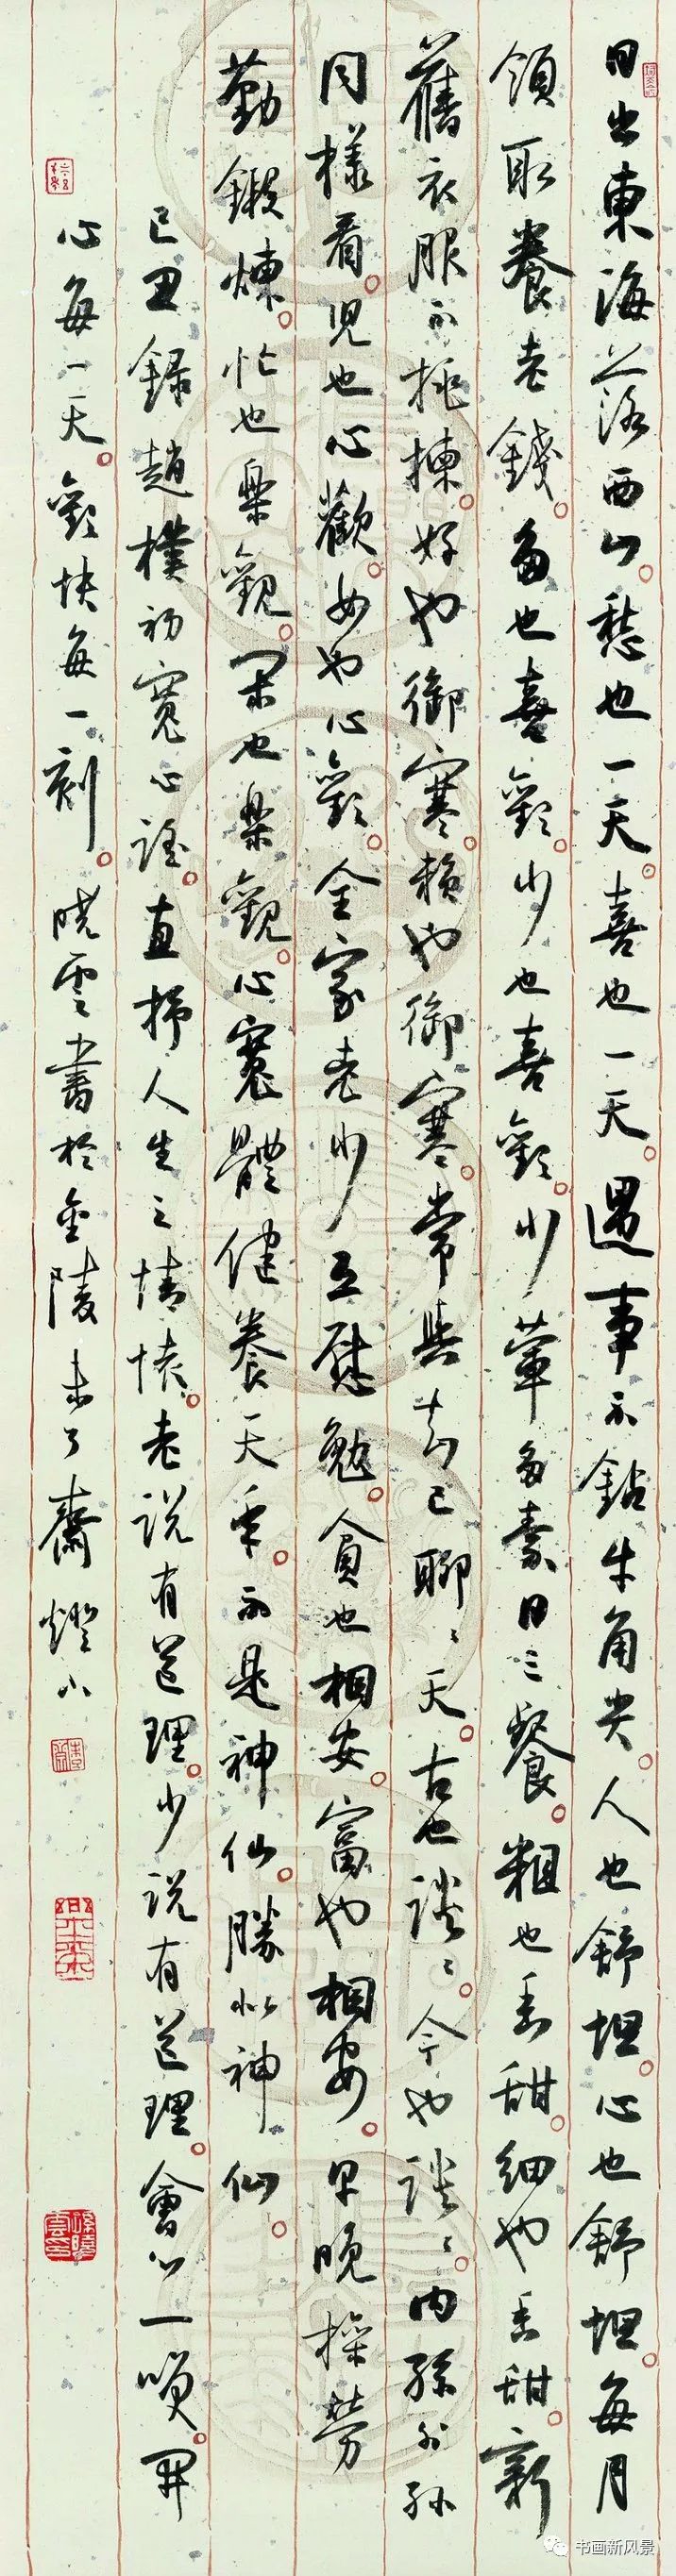 日出東海落西山。愁也一天。喜也一天。遇事不鉆牛角尖。人也舒坦。心也舒坦。每月
領取養老錢。多也喜歡。少也喜歡。少葷多素日三餐。粗也香甜。細也香甜。新
舊衣服不挑揀。好也御寒。賴也御寒。常與知己聊〻天。古也談〻。今也談〻。内孫外孫
同樣看。児也心歡。女也心歡。全家老少互慰勉。貧也相安。富也相安。早晚操勞
勤鍛煉。忙也樂觀。閑也樂觀。心寬體健養天年。不是神仙。勝似神仙。
己丑錄趙樸初寬心謠。直抒人生之情懷。老說有道理。少說有道理。會心一笑。開
心每一天。歡快每一刻。曉雲書於金陵未了齋燈下
孫曉雲印
书画新风景